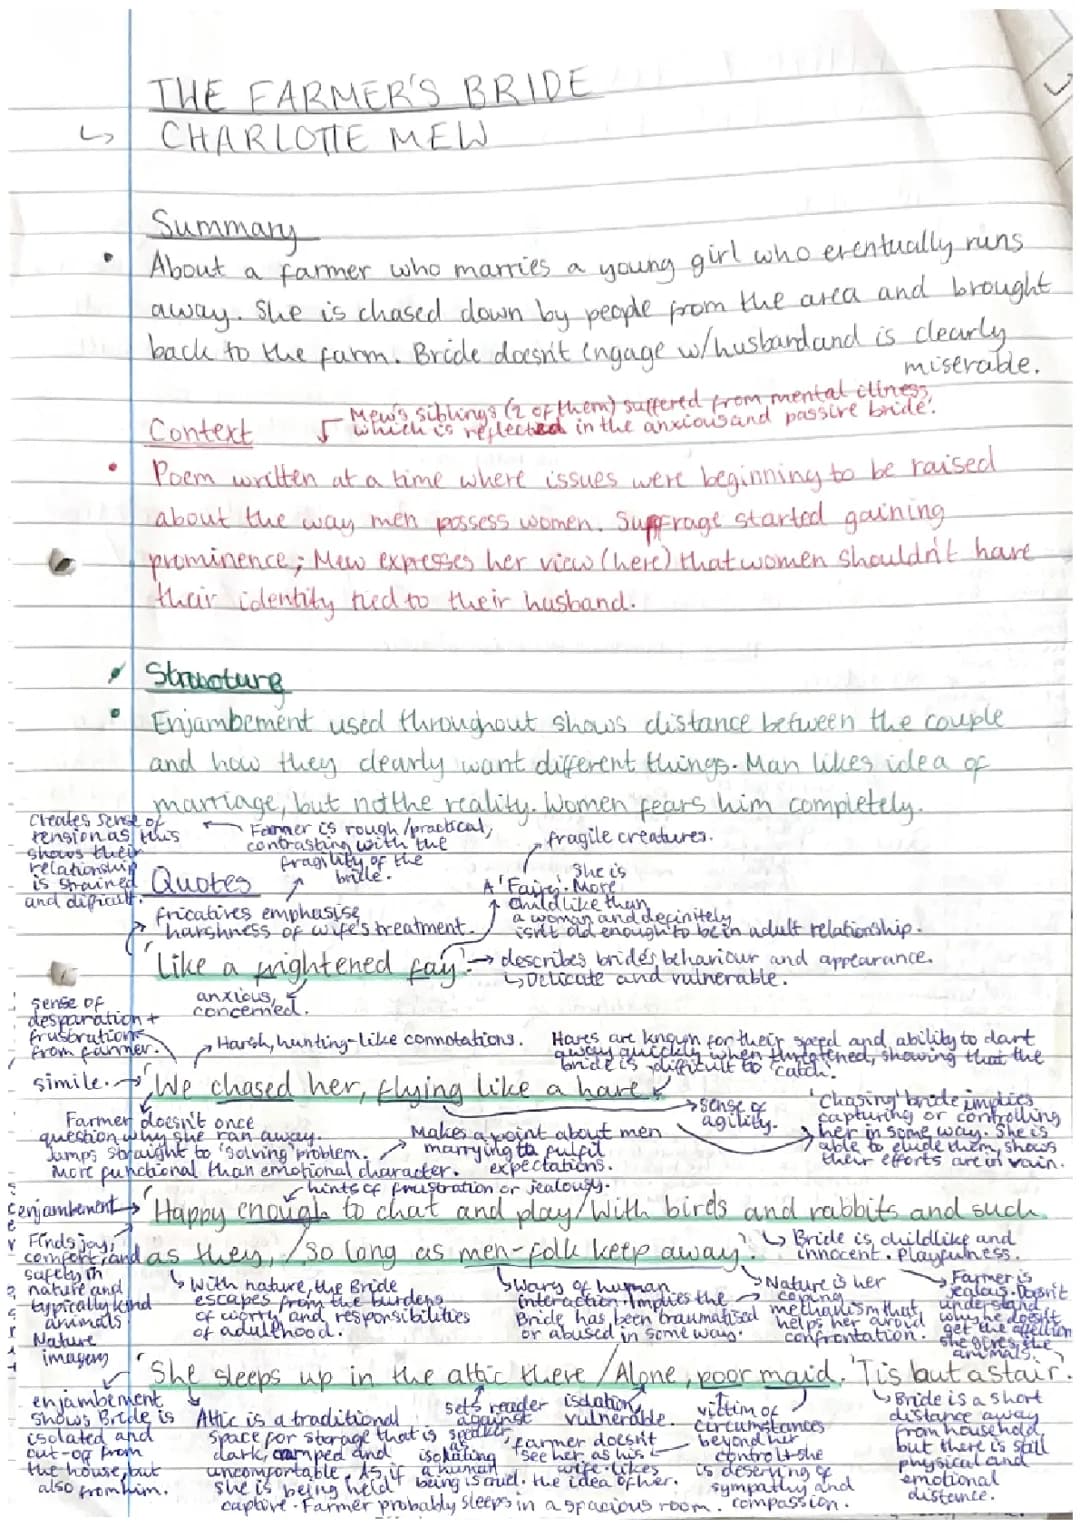 THE FARMER'S BRIDE
↳ CHARLOTTE MEW
Summary
• About a farmer who marries a young girl who eventually runs
away. She is chased down by people from the area and brought
back to the farm. Bride doesn't engage w/husband and is clearly
miserable.
Mew's siblings (2 of them) suffered from mental illness,
which is reflected in the anxious and passive bride.
Context
• Poem written at a time where issues were beginning to be raised
about the way men possess women. Suffrage started gaining
prominence; Mew expresses her view (here) that women shouldn't have
their identity tied to their husband.
Structure
• Enjambement used throughout shows distance between the couple
and how they clearly want different things. Man likes idea of
marriage, but not the reality. Women fears him completely.
creates sense of
tension as this
shows their
relationship
is strained
and difficult.
Farmer is rough/practical,
contrasting with the
fragility of the
bride.
fragile creatures.
Quotes
She is
A 'Fairy'. More
childlike than
a woman and definitely
isn't old enough to be in adult relationship.
fricatives emphasise
harshness of wife's treatment.
'Like a frightened fay' → describes bride's behaviour and appearance.
↳ Delicate and vulnerable.
anxious,
concerned.
sense of
desparation +
frustration
from farmer.
Harsh, hunting-like connotations.
Hares are known for their speed and ability to dart
away quickly when threatened, showing that the
bride is difficult to 'catch'.
simile. → 'We chased her, flying like a hare'
Farmer doesn't once
question why she ran away.
Jumps straight to 'solving' problem.
More functional than emotional character.
Makes a point about men
marrying to fulfil
expectations.
sense of
agility.
'Chasing' bride implies
capturing or controlling
her in some way. She is
able to elude them, shows
their efforts are in vain.
hints of frustration or jealousy.
enjambement → 'Happy enough to chat and play/With birds and rabbits and such
as they, /So long as men-folk keep away'.
Finds joy,
comfort, and
safety in
nature and
typically kind
animals
Nature
imagery
↳ Bride is childlike and
innocent. Playfulness.
↳ With nature, the Bride
escapes from the burdens
of worry and responsibilities
of adulthood.
↳ Wary of human
interaction. Implies the
Bride has been traumatised
or abused in some way.
Nature is her
coping
mechanism that
helps her avoid
confrontation.
Farmer is
jealous. Doesn't
understand
why he doesn't
get the affection
she gives the
animals.
'She sleeps up in the attic there /Alone, poor maid. 'Tis but a stair'.
enjambement
shows Bride is
isolated and
cut-off from
the house, but
also from him.
Attic is a traditional
space for storage that is
dark, cramped and
uncomfortable. As if
she is being held
captive. Farmer probably sleeps in a spacious room.
sets reader
against
speaker
as
isolating
a human
being is cruel.
isolation,
vulnerable.
farmer doesn't
see her as his
wife - likes
the idea of her.
victim of
circumstances
beyond her
control + she
is deserving of
sympathy and
compassion.
↳ Bride is a short
distance away
from household,
but there is still
physical and
emotional
distance.